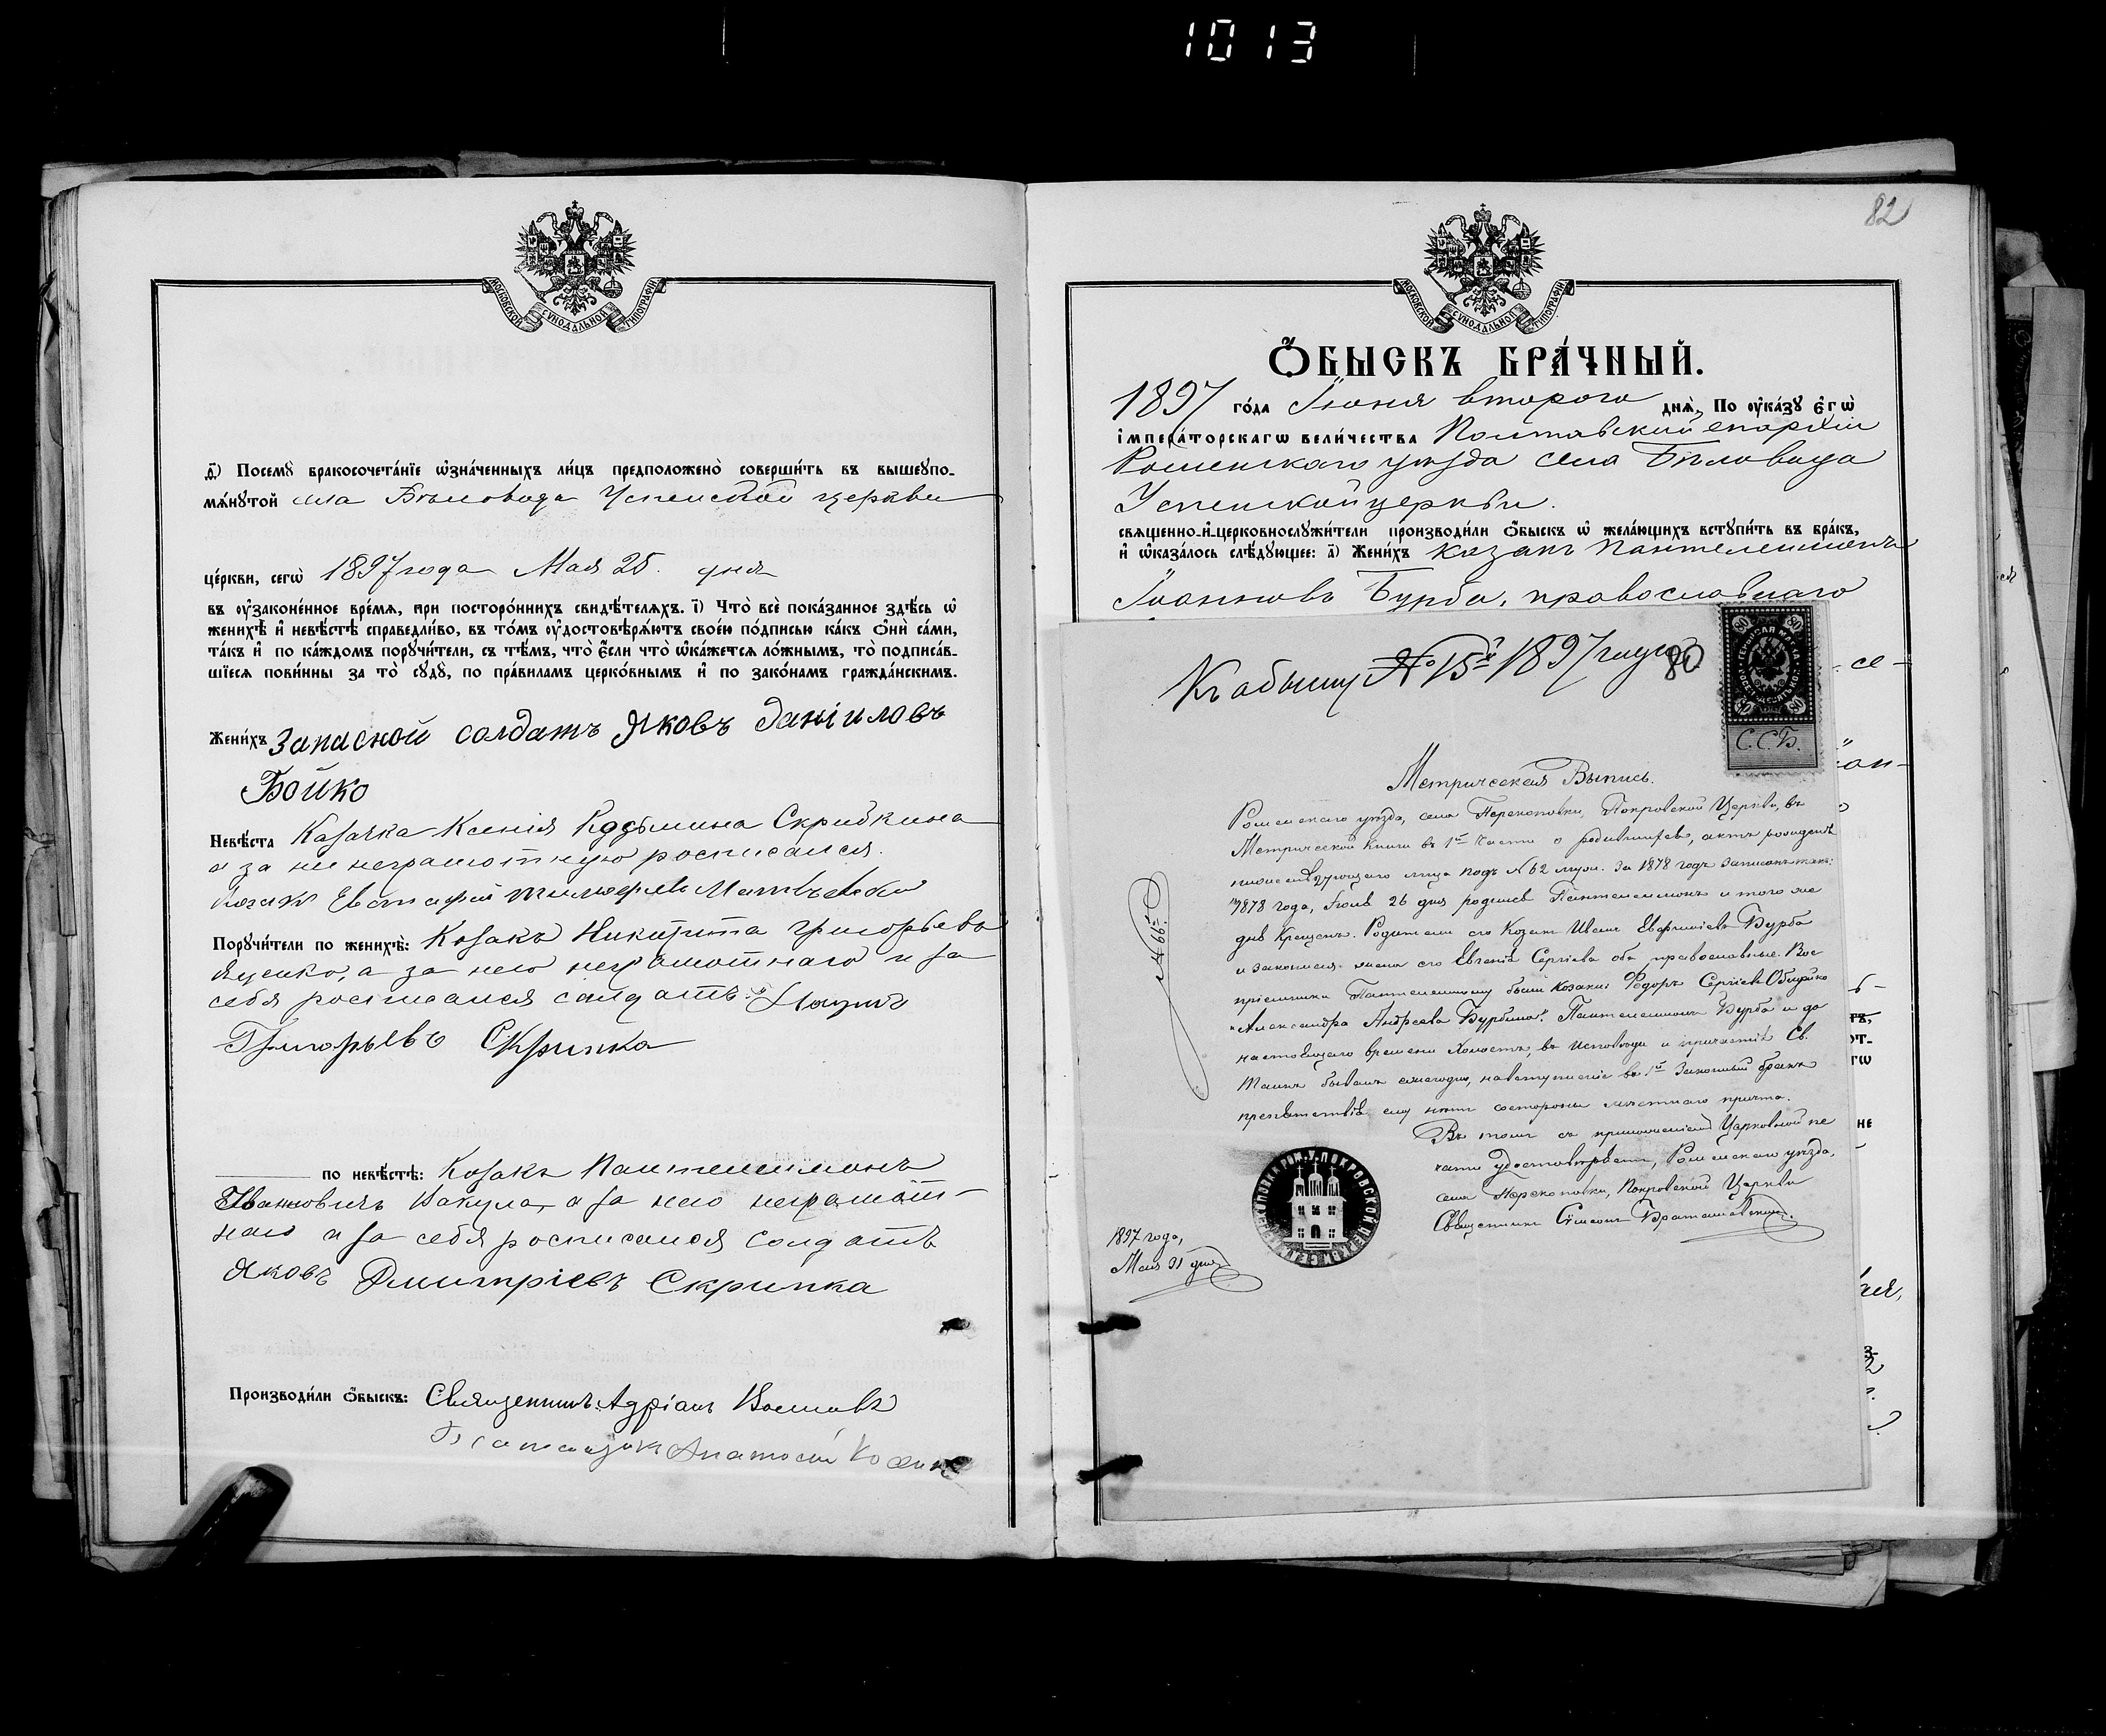 1013
МОСКОВСКОЙ СѴНОДАЛЬНОЙ ТИПОГРАФІИ
д҃) Посемꙋ̀ бракосочета́нїе ѡ҆зна́ченныхъ ли́цъ предположено̀ соверши́ть въ вышеꙋпо-
мѧ́нꙋтой села Бѣловода Успенской церкви
це́ркви, сегѡ̀ 1897 года Мая 25. дня
въ ᲂу҆зако́ненное вре́мѧ, при посторо́ннихъ свидѣ́телѧхъ. і҃) Что̀ всѐ пока́занное здѣ́сь ѡ҆
женихѣ̀ и҆ невѣ́стѣ справедли́во, въ то́мъ ᲂу҆достовѣрѧ́ютъ свое́ю по́дписью ка́къ ѻ҆нѝ са́ми,
та́къ и҆ по ка́ждомъ порꙋчи́тели, съ тѣ́мъ, что̀ є҆́сли что̀ ѡ҆ка́жетсѧ ло́жнымъ, то̀ подписа́в-
шїесѧ пови́нны за то̀ сꙋдꙋ̀, по пра́виламъ церко́внымъ и҆ по зако́намъ гражда́нскимъ.
Жени́хъ Запасной солдатъ Яковъ Даніиловъ
Бойко
Невѣ́ста Казачка Ксенія Скрипкина
а за нее неграмотную росписался
козакъ Евстафій
Порꙋчи́тели по женихѣ̀: Козакъ Никита Григорьевъ
а за него неграмотнаго и за
себя росписался солдатъ
Григорьевъ Скрипка
по невѣ́стѣ: Козакъ Пантелеимонъ
Ивановичъ Вакула, а за него неграмот-
наго и за себя росписался солдатъ
Яковъ Дмитріевъ Скрипка
Производи́ли ѻ҆́быскъ: Священникъ Адріанъ
Псаломщикъ
82
МОСКОВСКОЙ СѴНОДАЛЬНОЙ ТИПОГРАФІИ
Ѻ҆́БЫСКЪ БРА́ЧНЫЙ.
1897 го́да Іюня второго днѧ̀. По ᲂу҆ка́зꙋ є҆гѡ̀
і҆мпера́торскагѡ вели́чества Полтавской епархіи
Роменскаго уѣзда села Бѣловода
Успенской церкви.
свѧще́нно-и҆-церковнослꙋжи́тели производи́ли ѻ҆́быскъ ѡ҆ жела́ющихъ встꙋпи́ть въ бра́къ,
и҆ ѡ҆каза́лось слѣ́дꙋющее: а҃) Жени́хъ козакъ Пантелеимонъ
Іоанновъ Бурба, православнаго
Къ обыску № 15й 1897 года
80
80 80
ГЕРБОВАЯ МАРКА
ВОСЕМЬДЕСЯТЪ КОП.
80 80
С.С.Б.
№ 66.
Метрическая Выпись.
Роменскаго уѣзда, села Перекоповки, Покровской Церкви, въ
Метрической книгѣ въ 1й части о родившихся, актъ рожденія
лица подъ № 62 муж. за 1878 годъ записанъ такъ:
"1878 года, Іюля 26 дня родился Пантелеимонъ и того же
дня Крещенъ. Родители его Козакъ Иванъ Евфиміевъ Бурба
и законная жена его Евгенія Сергіева оба православные. Вос
пріемники Пантелеимону были Козаки: Федоръ Сергіевъ
Александра Андреева Бурбина". Пантелеимонъ Бурба и до
настоящаго времени холостъ, въ исповѣди и причастіи Св.
Таинъ бываетъ ежегодно, на вступленіе въ 1й законный бракъ
препятствія ему нѣтъ со стороны мѣстнаго причта.
Въ томъ съ приложеніемъ Церковной пе
чати удостовѣряетъ, Роменскаго уѣзда,
села Перекоповки, Покровской Церкви
Священникъ Симеонъ Браташевскій.
1897 года,
Мая 31 дня